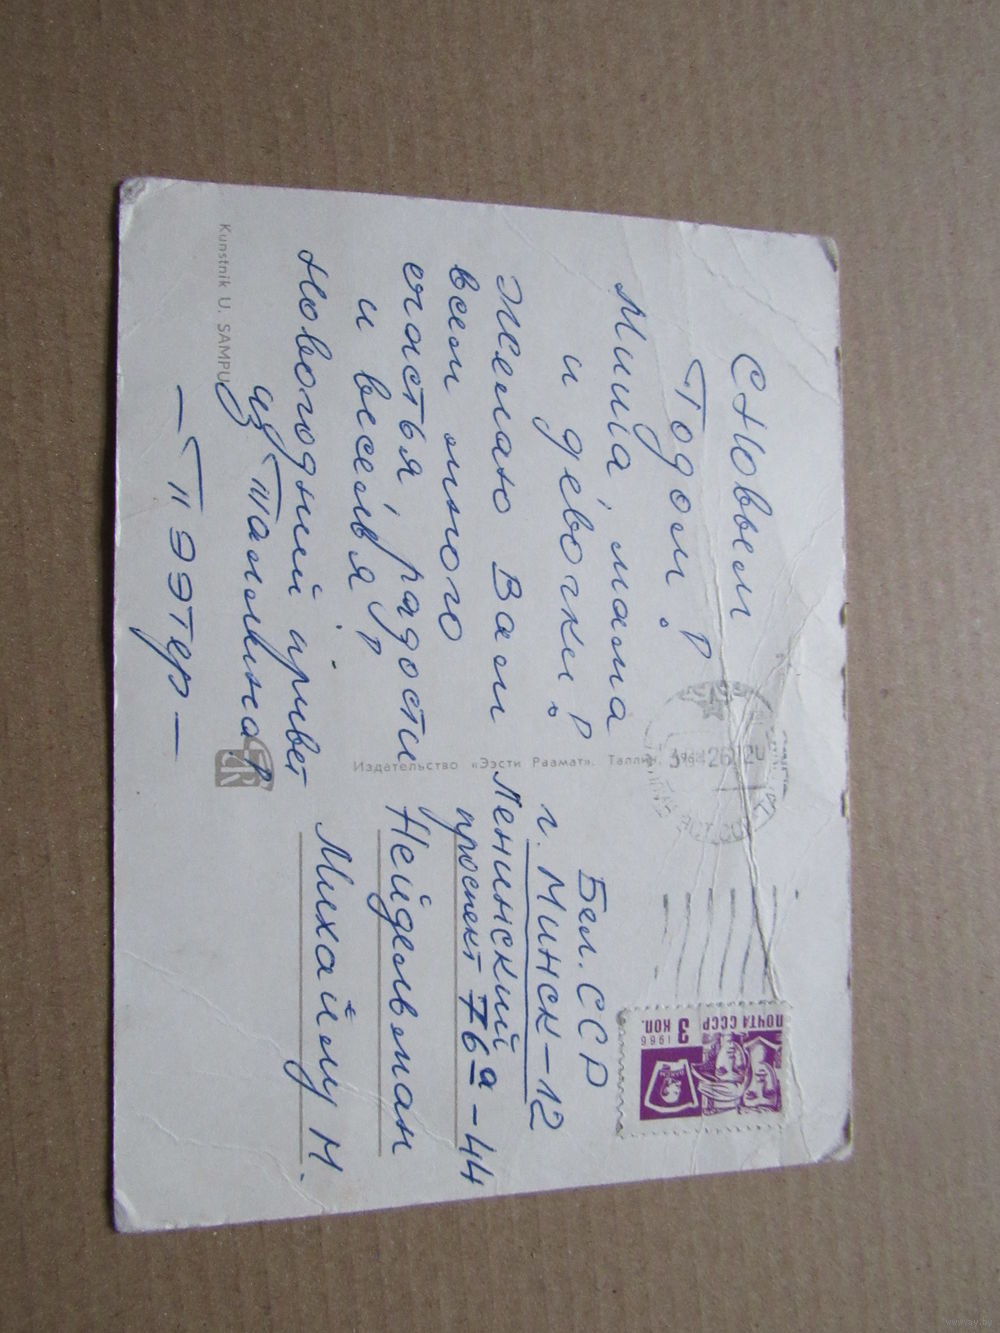 С Новым
Годом!
Миша, мама
и девочки!
Желаю Вам
всем много
счастья, радости
и веселья!
Новогодний привет
из Таллина!
— Пээтер —
Kunstnik U. SAMPU
Издательство «Ээсти Раамат». Таллин.
Бел. ССР
г. Минск-12
Ленинский
проспект 76а-44
Нейдельман
Михайлу Н.
ПОЧТА СССР
3 КОП.
1966
www.ay.by